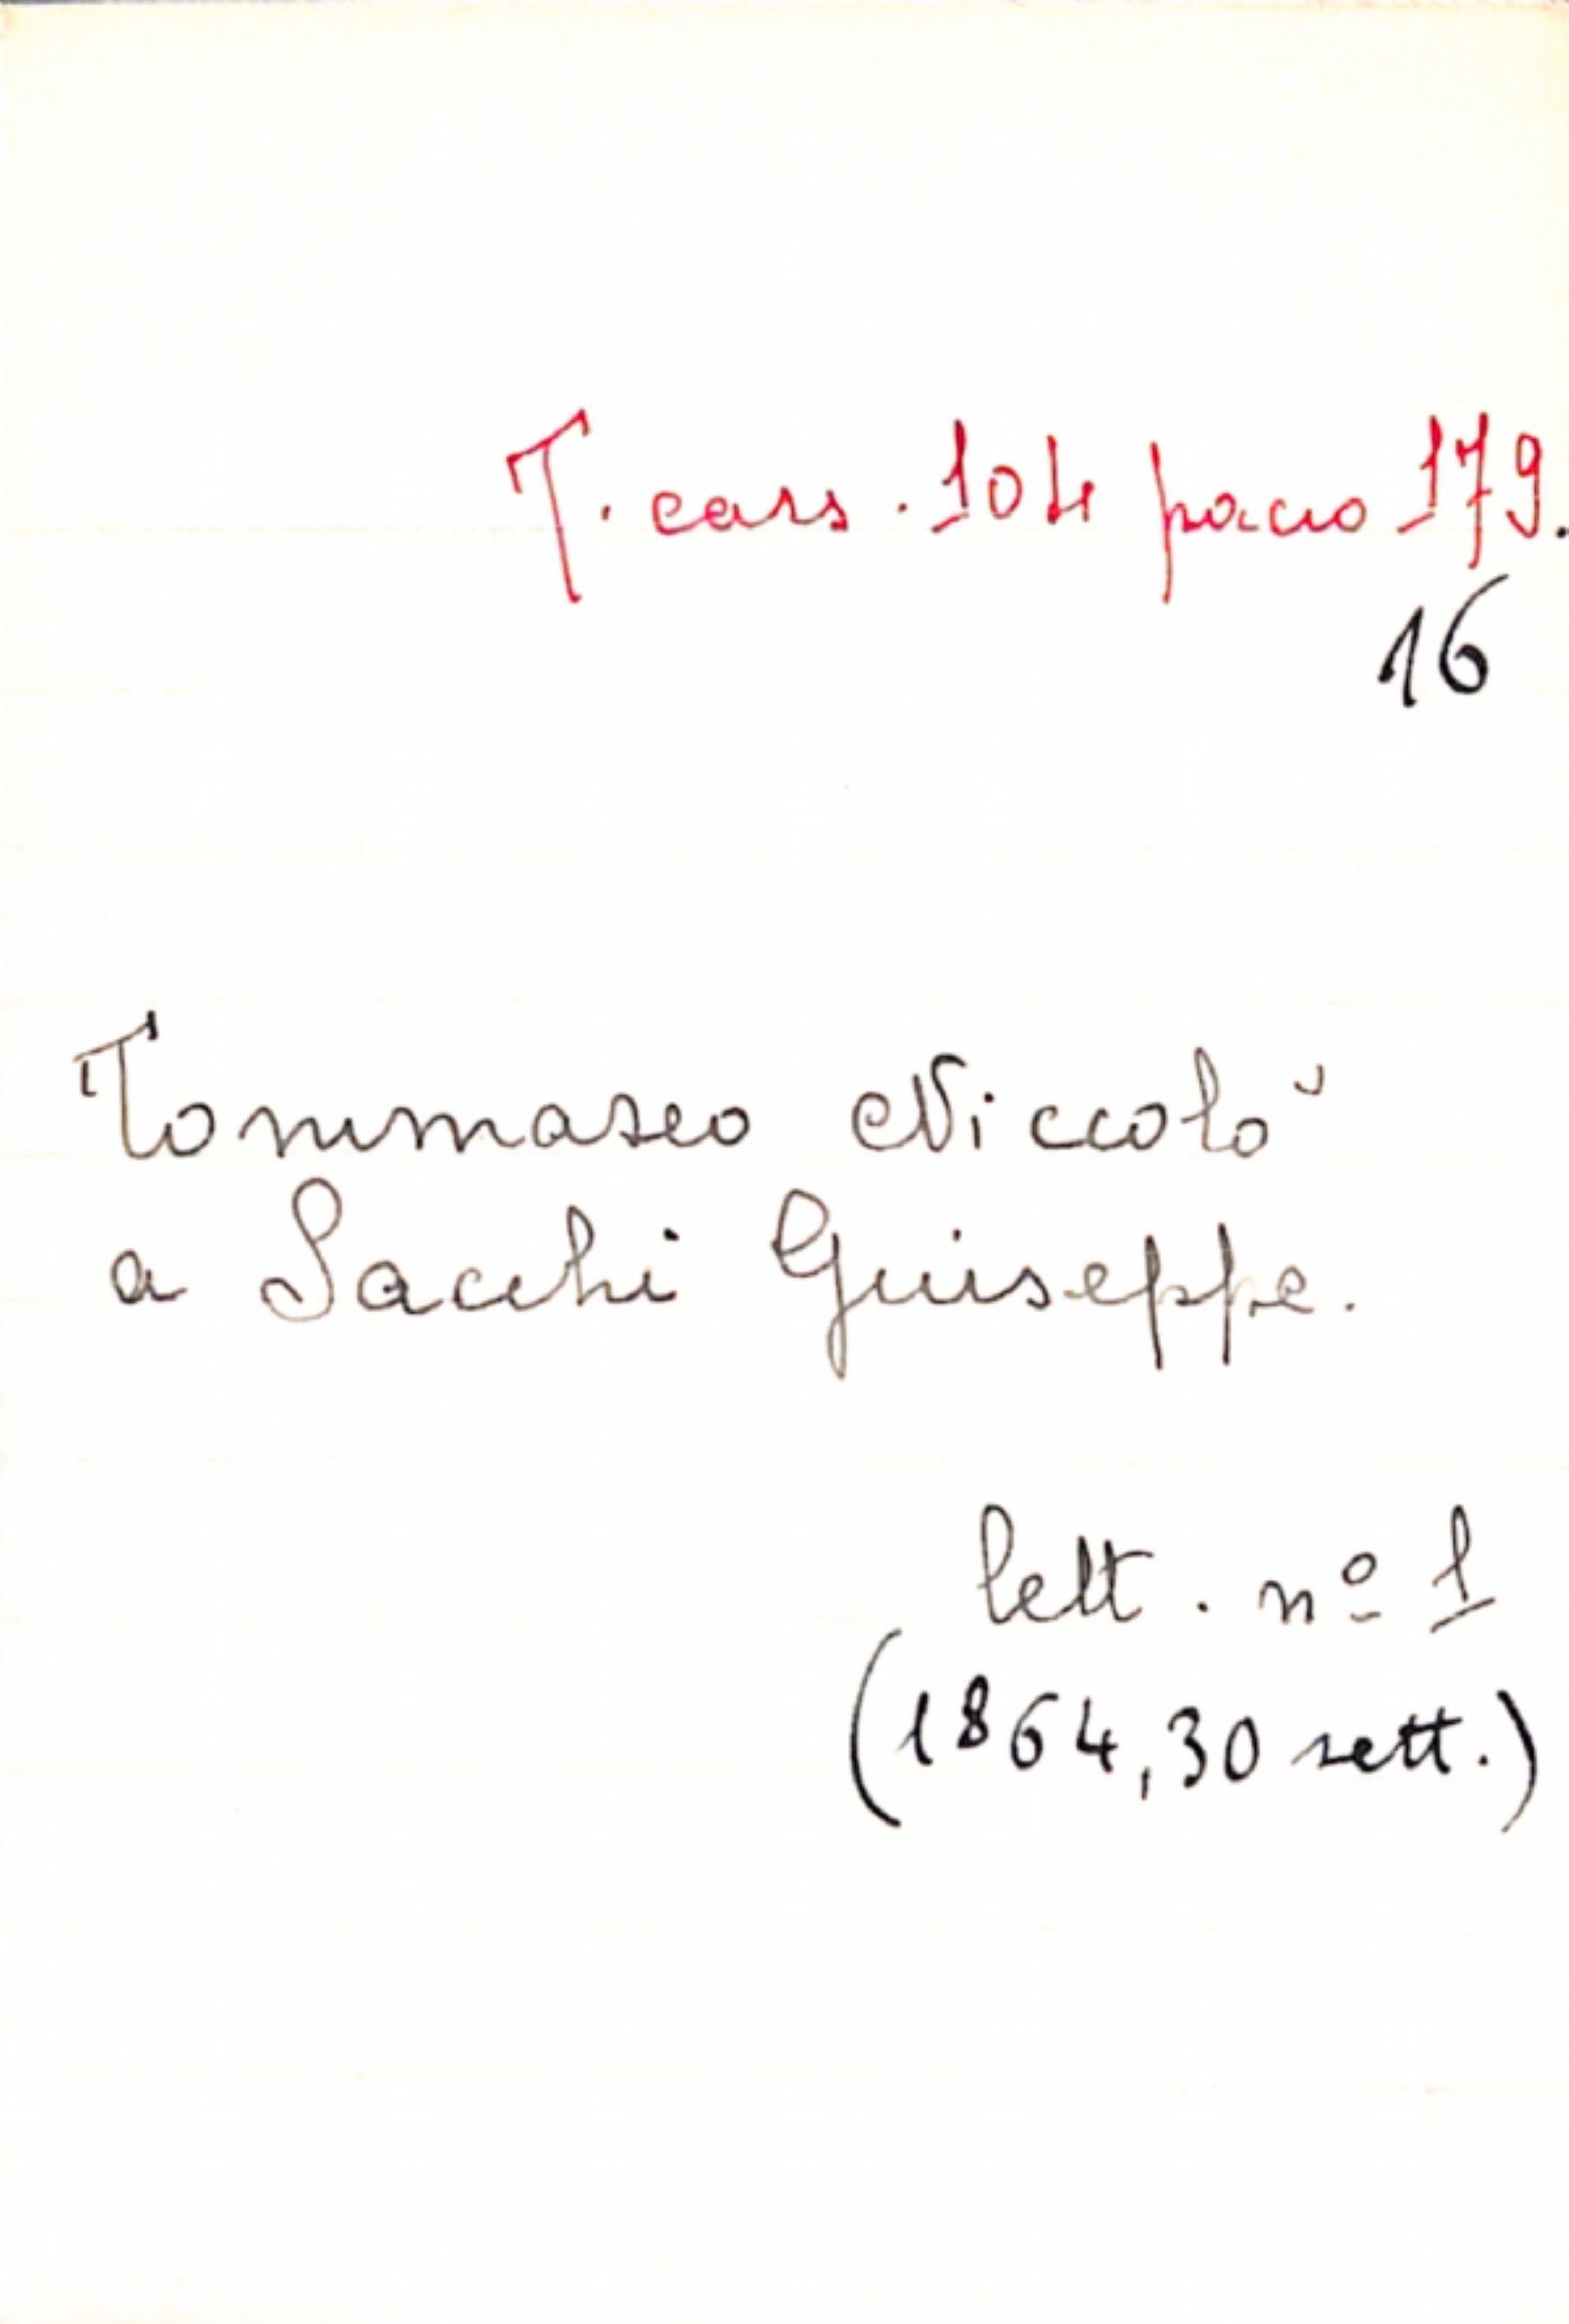 T. cass. 104 pacco 179.
16
Tommaseo Niccolò
a Sacchi Giuseppe.
lett. nº 1
(1864, 30 sett.)